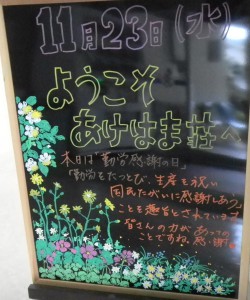 11月23日(水)
ようこそ
あけはま荘へ
本日は「勤労感謝の日」
「勤労をたっとび、生産を祝い
国民たがいに感謝しあう」
ことを趣旨とされています。
皆さんの力があっての
ことですね。感謝